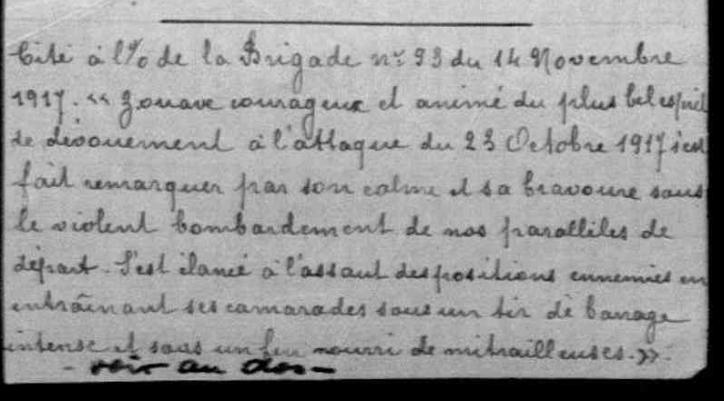 Cité à l'% de la Brigade n° 93 du 14 Novembre
1917. « Zouave courageux et animé du plus bel esprit
de dévouement à l'attaque du 23 Octobre 1917 s'est
fait remarquer par son calme et sa bravoure sous
le violent bombardement de nos parallèles de
départ. S'est élancé à l'assaut des positions ennemies en
entraînant ses camarades sous un tir de barrage
intense et sous un feu nourri de mitrailleuses. »
- voir au dos -